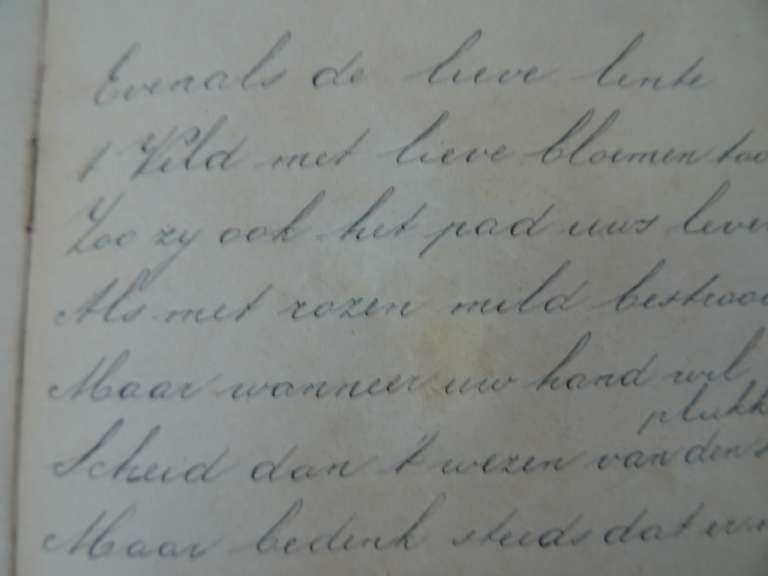 Evenals de lieve lente
't Veld met lieve bloemen too
Zoo zy ook het pad uws leve
Als met rozen mild bestrooi
Maar wanneer uw hand wil
plukk
Scheid dan 't wezen van den
Maar bedenk steeds dat